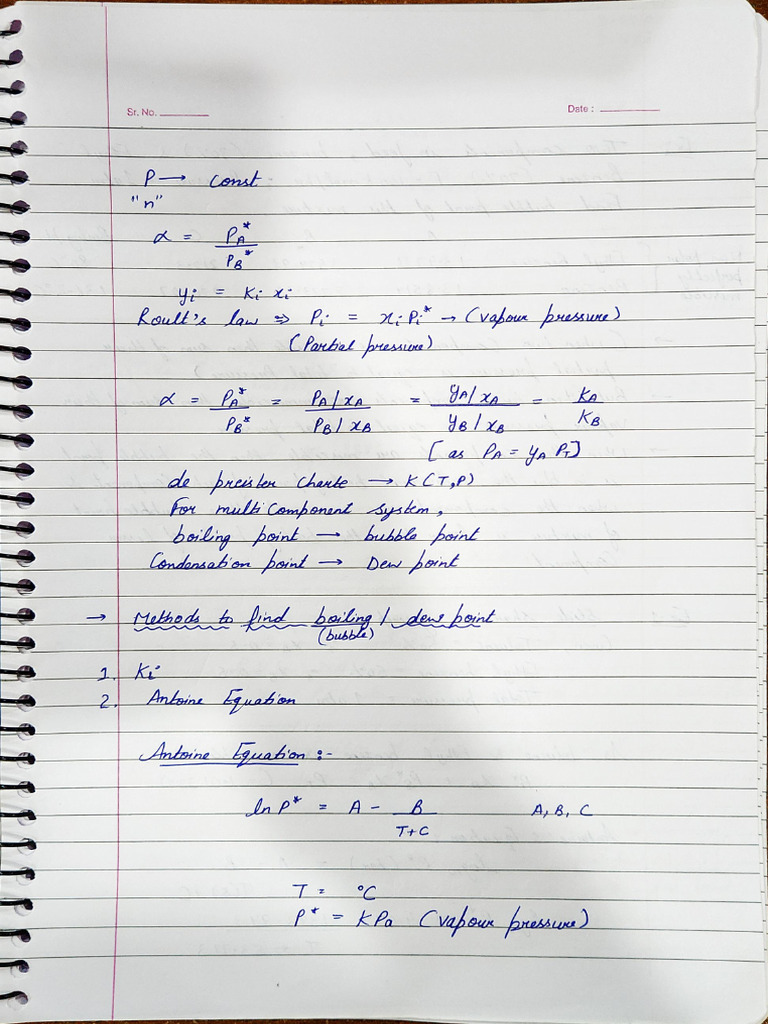 Sr. No.
Date :
P → Const
"n"
α = PA* / PB*
yi = Ki xi
Roult's law ⇒ Pi = xi Pi* → (vapour pressure)
(Partial pressure)
α = PA* / PB* = PA/xA / PB/xB = yA/xA / yB/xB = KA / KB
[as PA = yA PT]
de preister charte → K(T,P)
For multicomponent system,
boiling point → bubble point
Condensation point → Dew point
→ Methods to find boiling / dew point
(bubble)
1. Ki
2. Antoine Equation
Antoine Equation :-
ln P* = A - B / T+C A, B, C
T = °C
P* = KPa (vapour pressure)